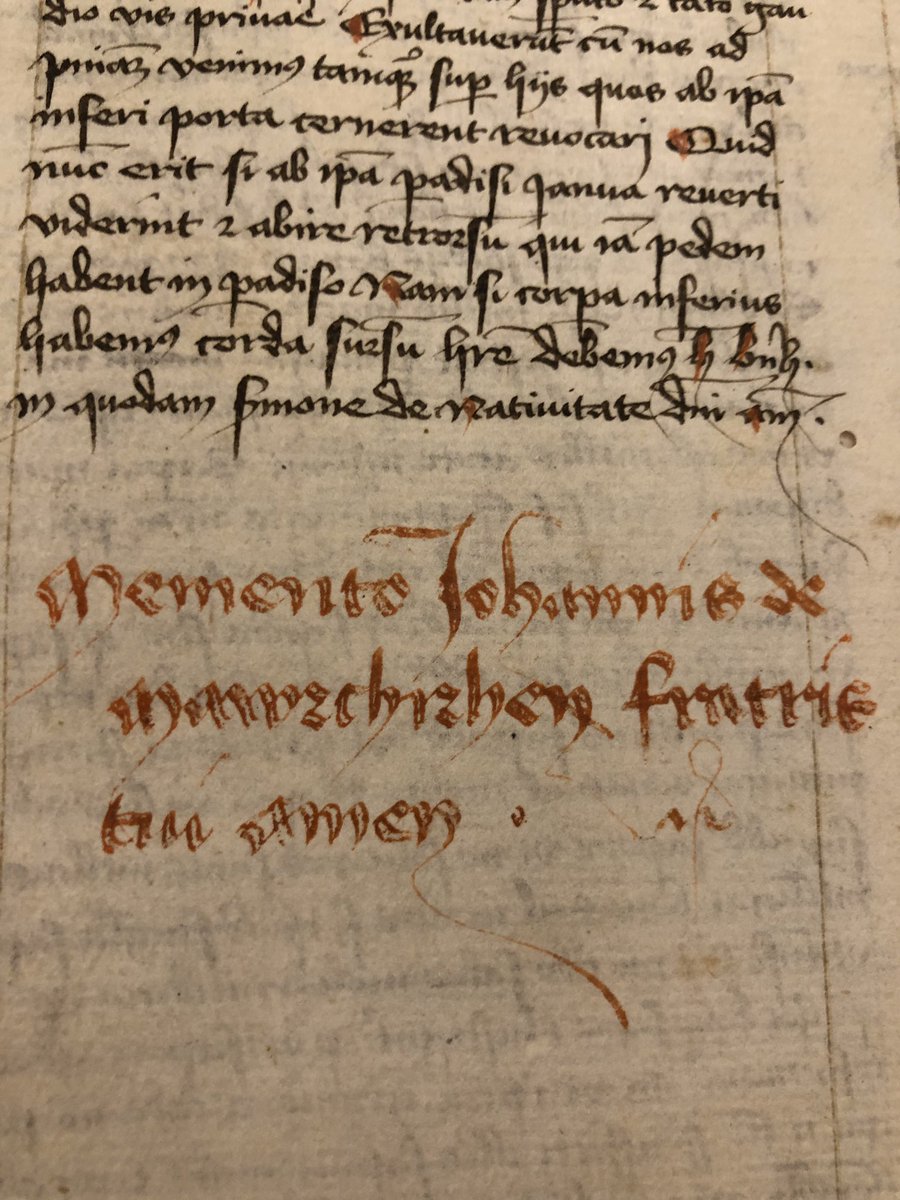 dio vis privaē Exultaverūt cū nos ad
pniāȝ venimꝰ tamqȝ̄ sup hijs quos ab ip̄a
inferi porta cernerent revocari Quid
nūc erit si ab ip̄a ꝑadisi Janua reverti
viderint ⁊ abire retrorsū qui iā pedem
habent in ꝑadiso Nam si corpa inferius
habemꝰ corda sursū hr̄e debemꝰ h̄ bn̄h.
in quodam s̄mone de Nativitate dn̄i am̄.
Memento Johannis de
mawrchirhen fratris
tui amen .